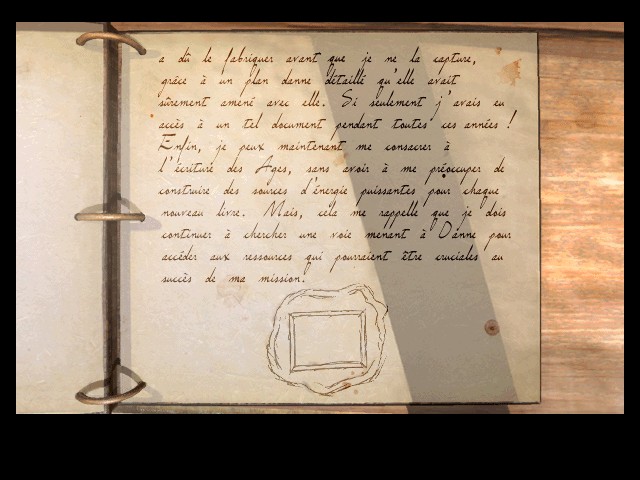 a dû le fabriquer avant que je ne la capture,
grâce à un plan danne détaillé qu'elle avait
sûrement amené avec elle. Si seulement j'avais eu
accès à un tel document pendant toutes ces années !
Enfin, je peux maintenant me consacrer à
l'écriture des Ages, sans avoir à me préoccuper de
construire des sources d'énergie puissantes pour chaque
nouveau livre. Mais, cela me rappelle que je dois
continuer à chercher une voie menant à D'anne pour
accéder aux ressources qui pourraient être cruciales au
succès de ma mission.